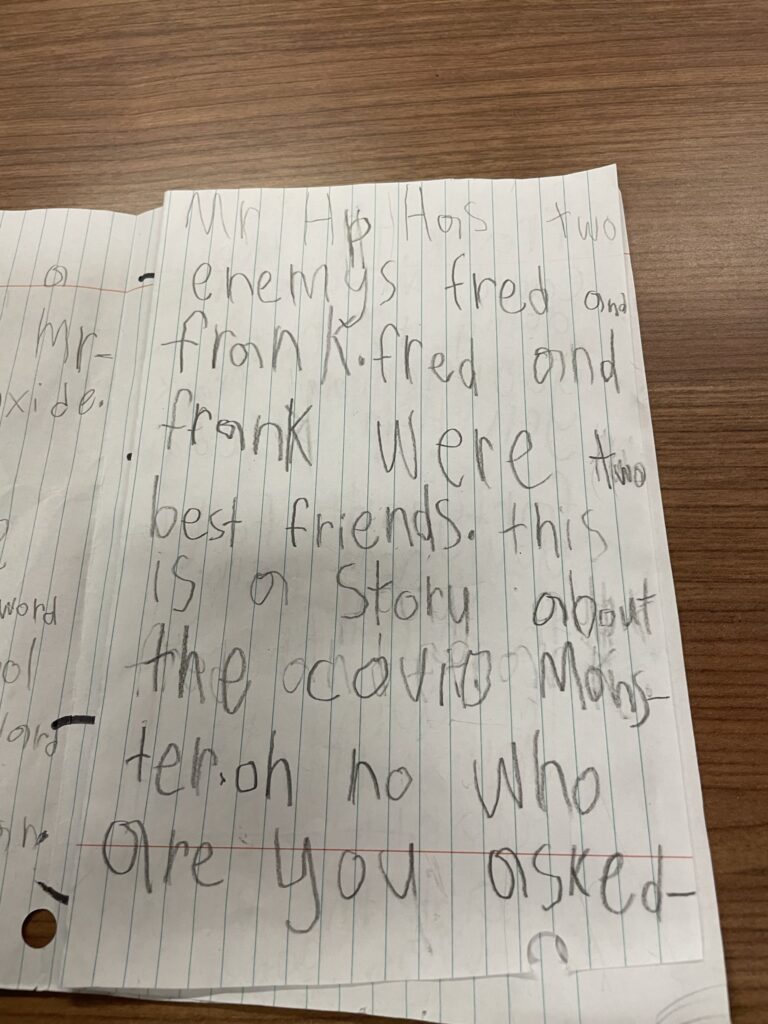 a
Mr-
xide.
word
ol
Mr Hp Has two
enemys fred and
frank. fred and
frank were two
best friends. this
is a story about
the covid Mons-
ter. oh no who
are you asked-